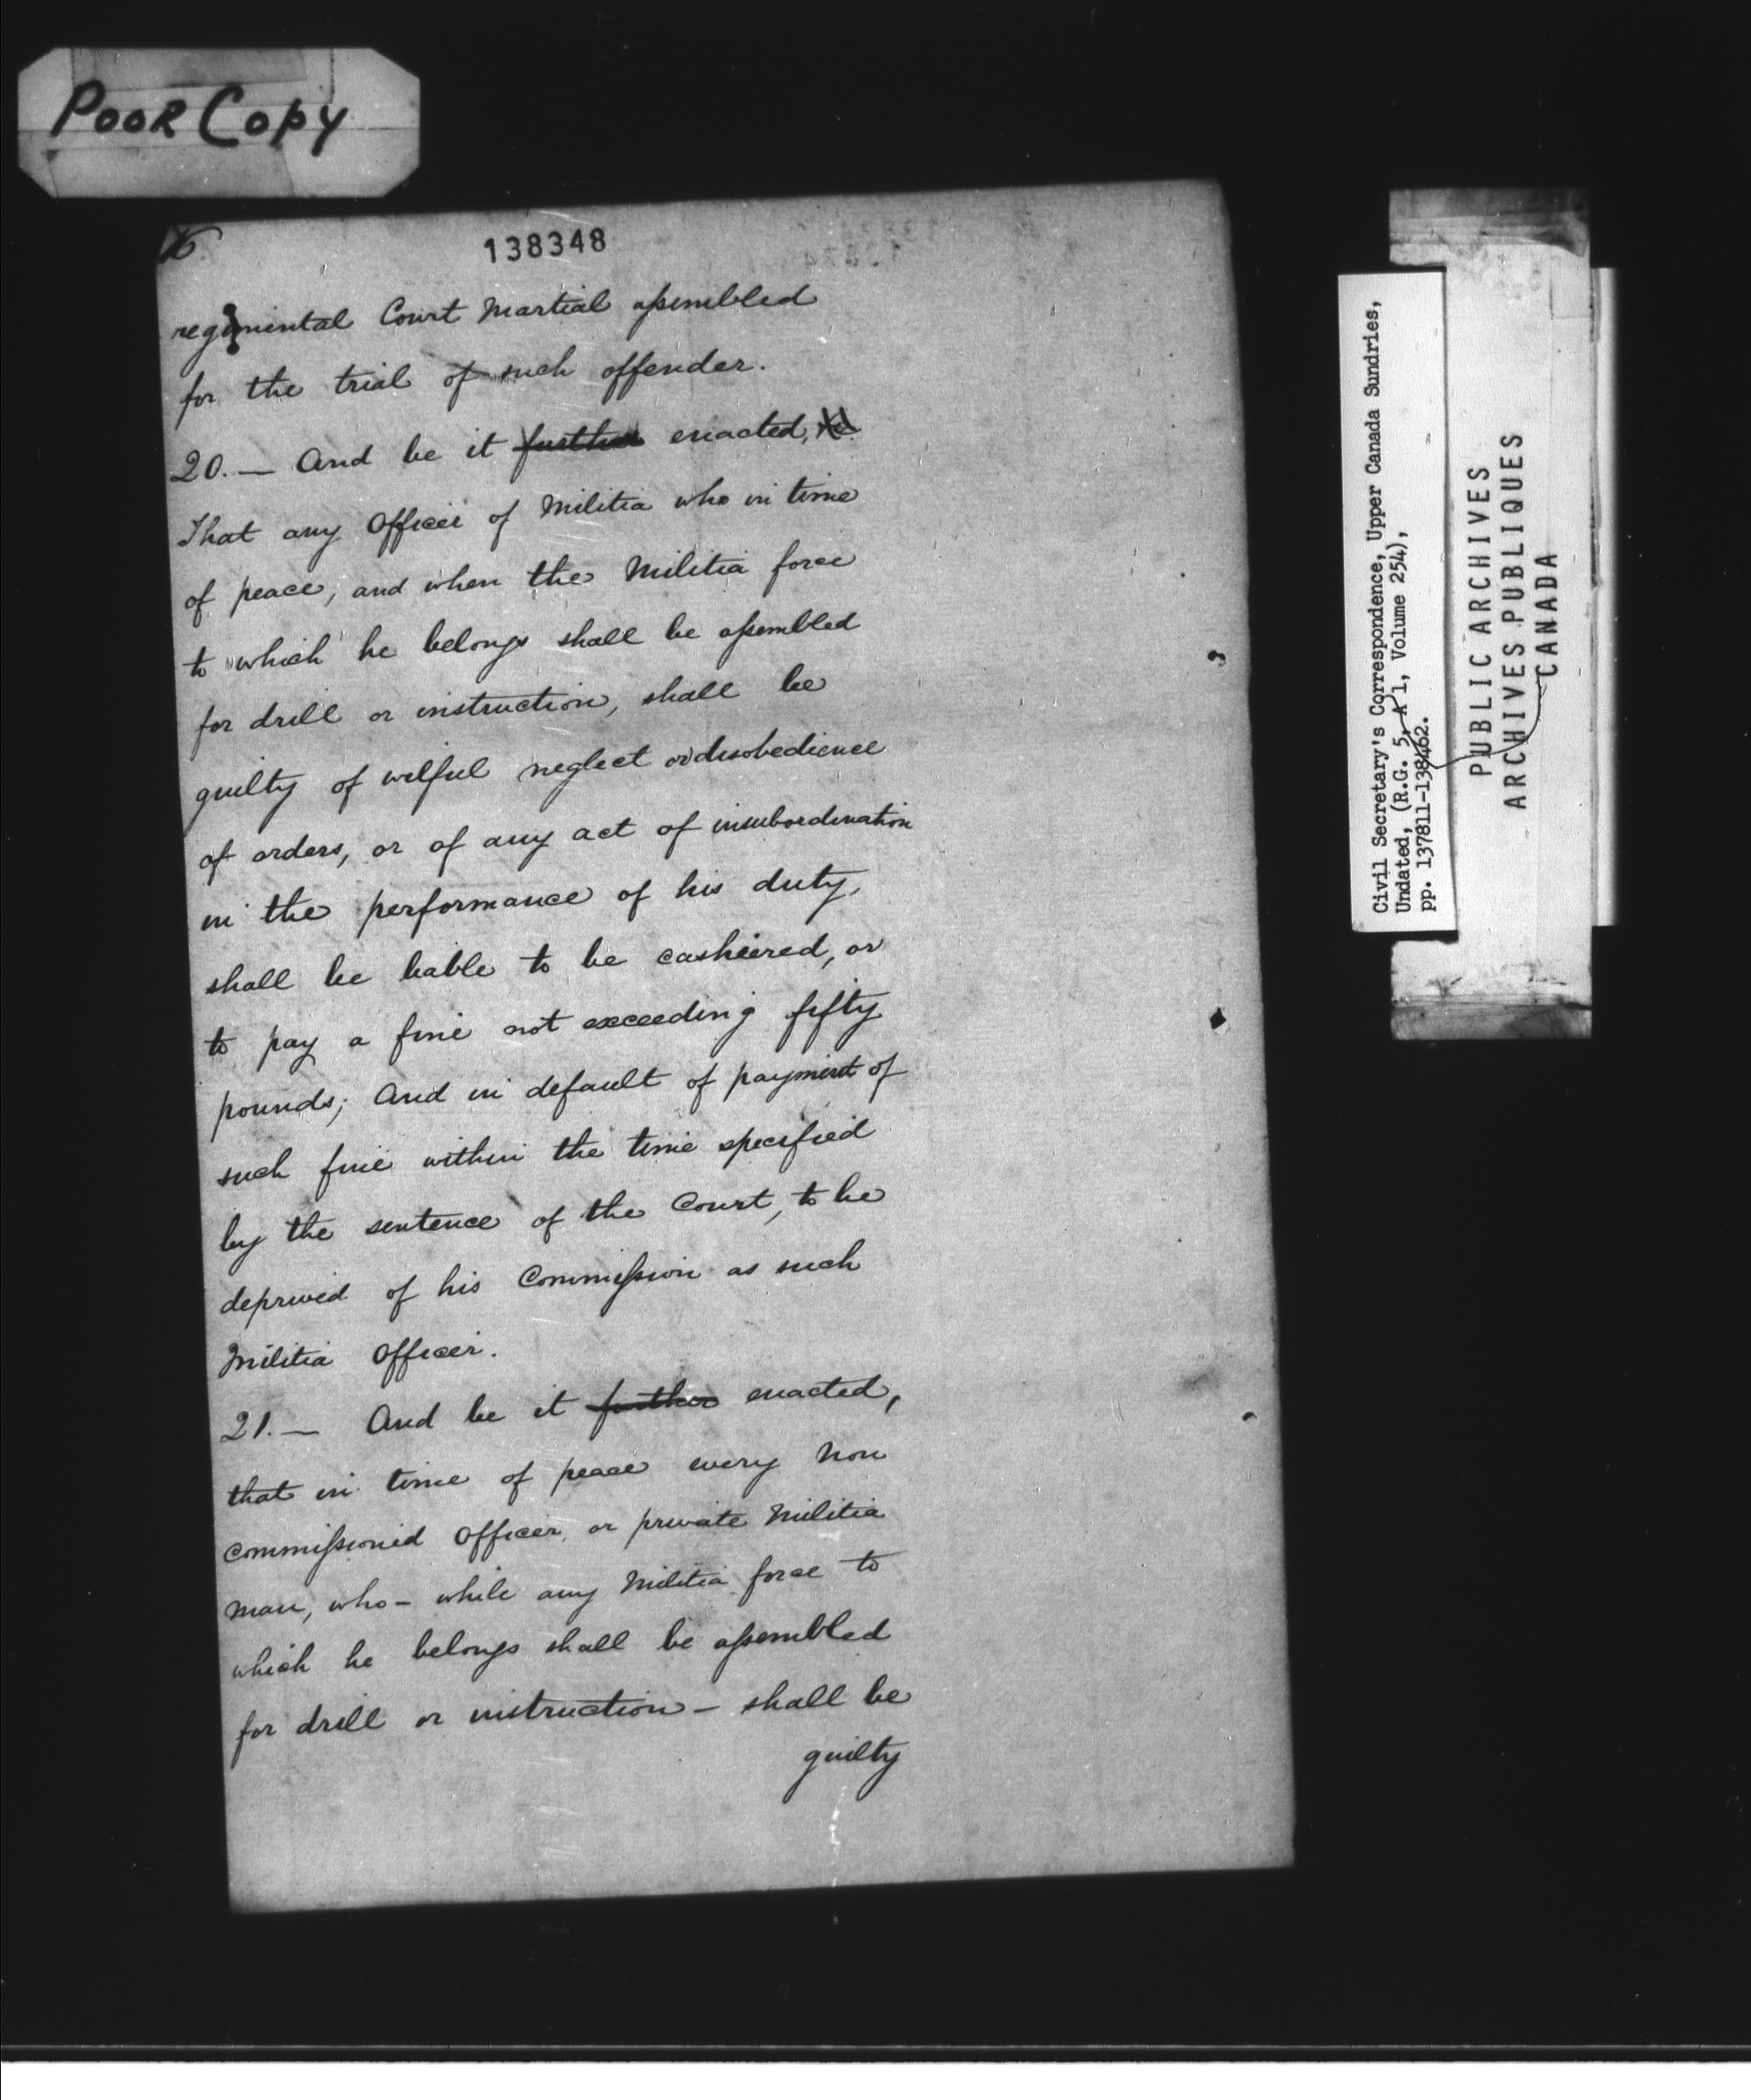 Poor Copy
138348
regimental Court Martial assembled
for the trial of such offender.
20. — And be it further enacted,
That any Officer of Militia who in time
of peace, and when the Militia force
to which he belongs shall be assembled
for drill or instruction, shall be
guilty of wilful neglect or disobedience
of orders, or of any act of insubordination
in the performance of his duty,
shall be liable to be cashiered, or
to pay a fine not exceeding fifty
pounds; And in default of payment of
such fine within the time specified
by the sentence of the Court, to be
deprived of his Commission as such
Militia Officer.
21. — And be it further enacted,
that in time of peace every Non
commissioned Officer or private Militia
man, who – while any Militia force to
which he belongs shall be assembled
for drill or instruction – shall be
guilty
Civil Secretary's Correspondence, Upper Canada Sundries,
Undated, (R.G. 5, A 1, Volume 254),
pp. 137811-138462.
PUBLIC ARCHIVES
ARCHIVES PUBLIQUES
CANADA